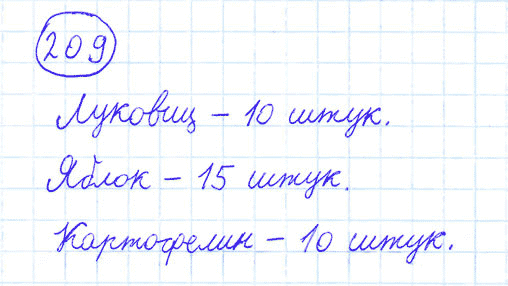 209
Луковиц – 10 штук.
Яблок – 15 штук.
Картофелин – 10 штук.